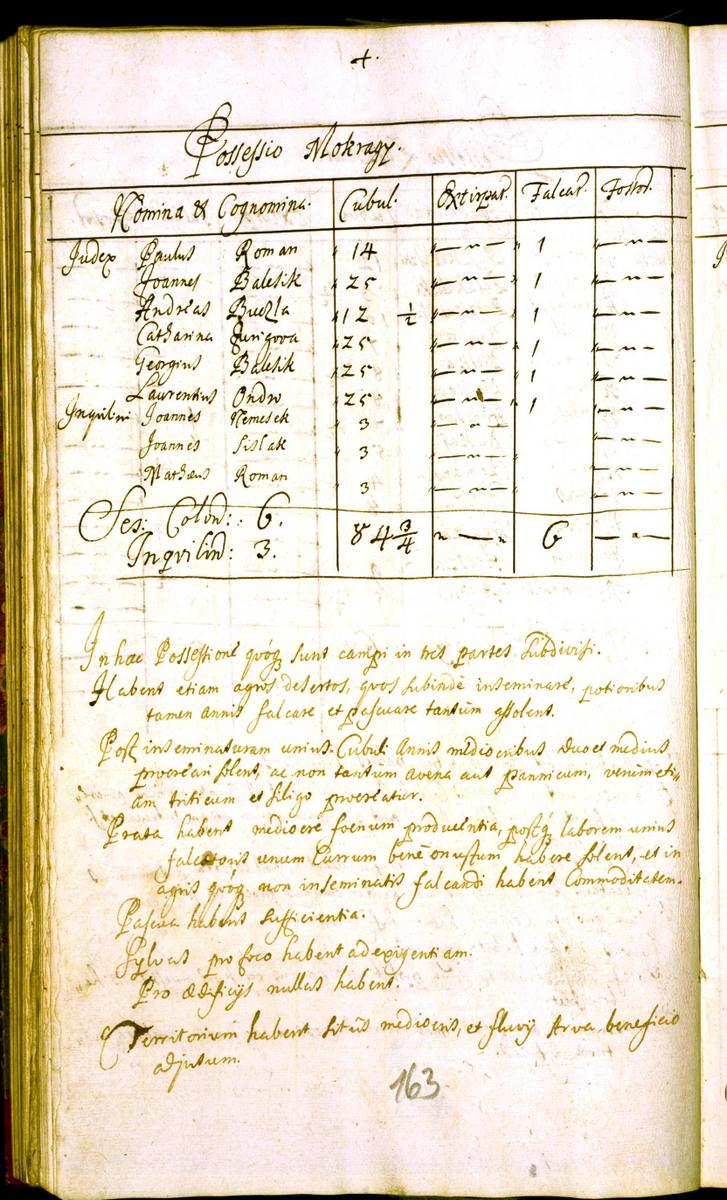 4.
Possessio Mokragy.
Nomina & Cognomina. Cubul. Extirpat. Falcat. Fossor.
Judex Paulus Roman 14 — " — 1 — " —
Joannes Balesik 25 — " — 1 — " —
Andreas Buczla 12 ½ — " — 1 — " —
Catharina Jurigova 25 — " — 1 — " —
Georgius Balesik 25 — " — 1 — " —
Laurentius Ondro 25 — " — 1 — " —
Inquilini Joannes Nemesek 3 — " — — " —
Joannes Sislak 3 — " — — " —
Mathæus Roman 3 — " — — " —
Ses: Colon: 6. 84 ¾ " — " 6 — " —
Inqvilin: 3.
In hac Possessione qvóq sunt campi in tres partes subdivisi.
Habent etiam agros desertos, quos subinde inseminare, potioribus
tamen annis falcare et pascuare tantum assolent.
Post inseminaturam unius Cubuli Annis mediocribus duo et medius
procreari solent, ac non tantum avena aut pannicum, verum eti„
am triticum et siligo procreatur.
Prata habent mediocre foenum producentia, postq laborem unius
falcatoris unum Currum bene onustum habere solent, et in
agris qvóq non inseminatis falcandi habent Commoditatem.
Pascua habent sufficientia.
Sylvas pro foco habent ad exigentiam.
Pro ædificijs nullas habent.
Territorium habent sitūs mediocris, et fluvij Arva beneficio
adjutum.
163